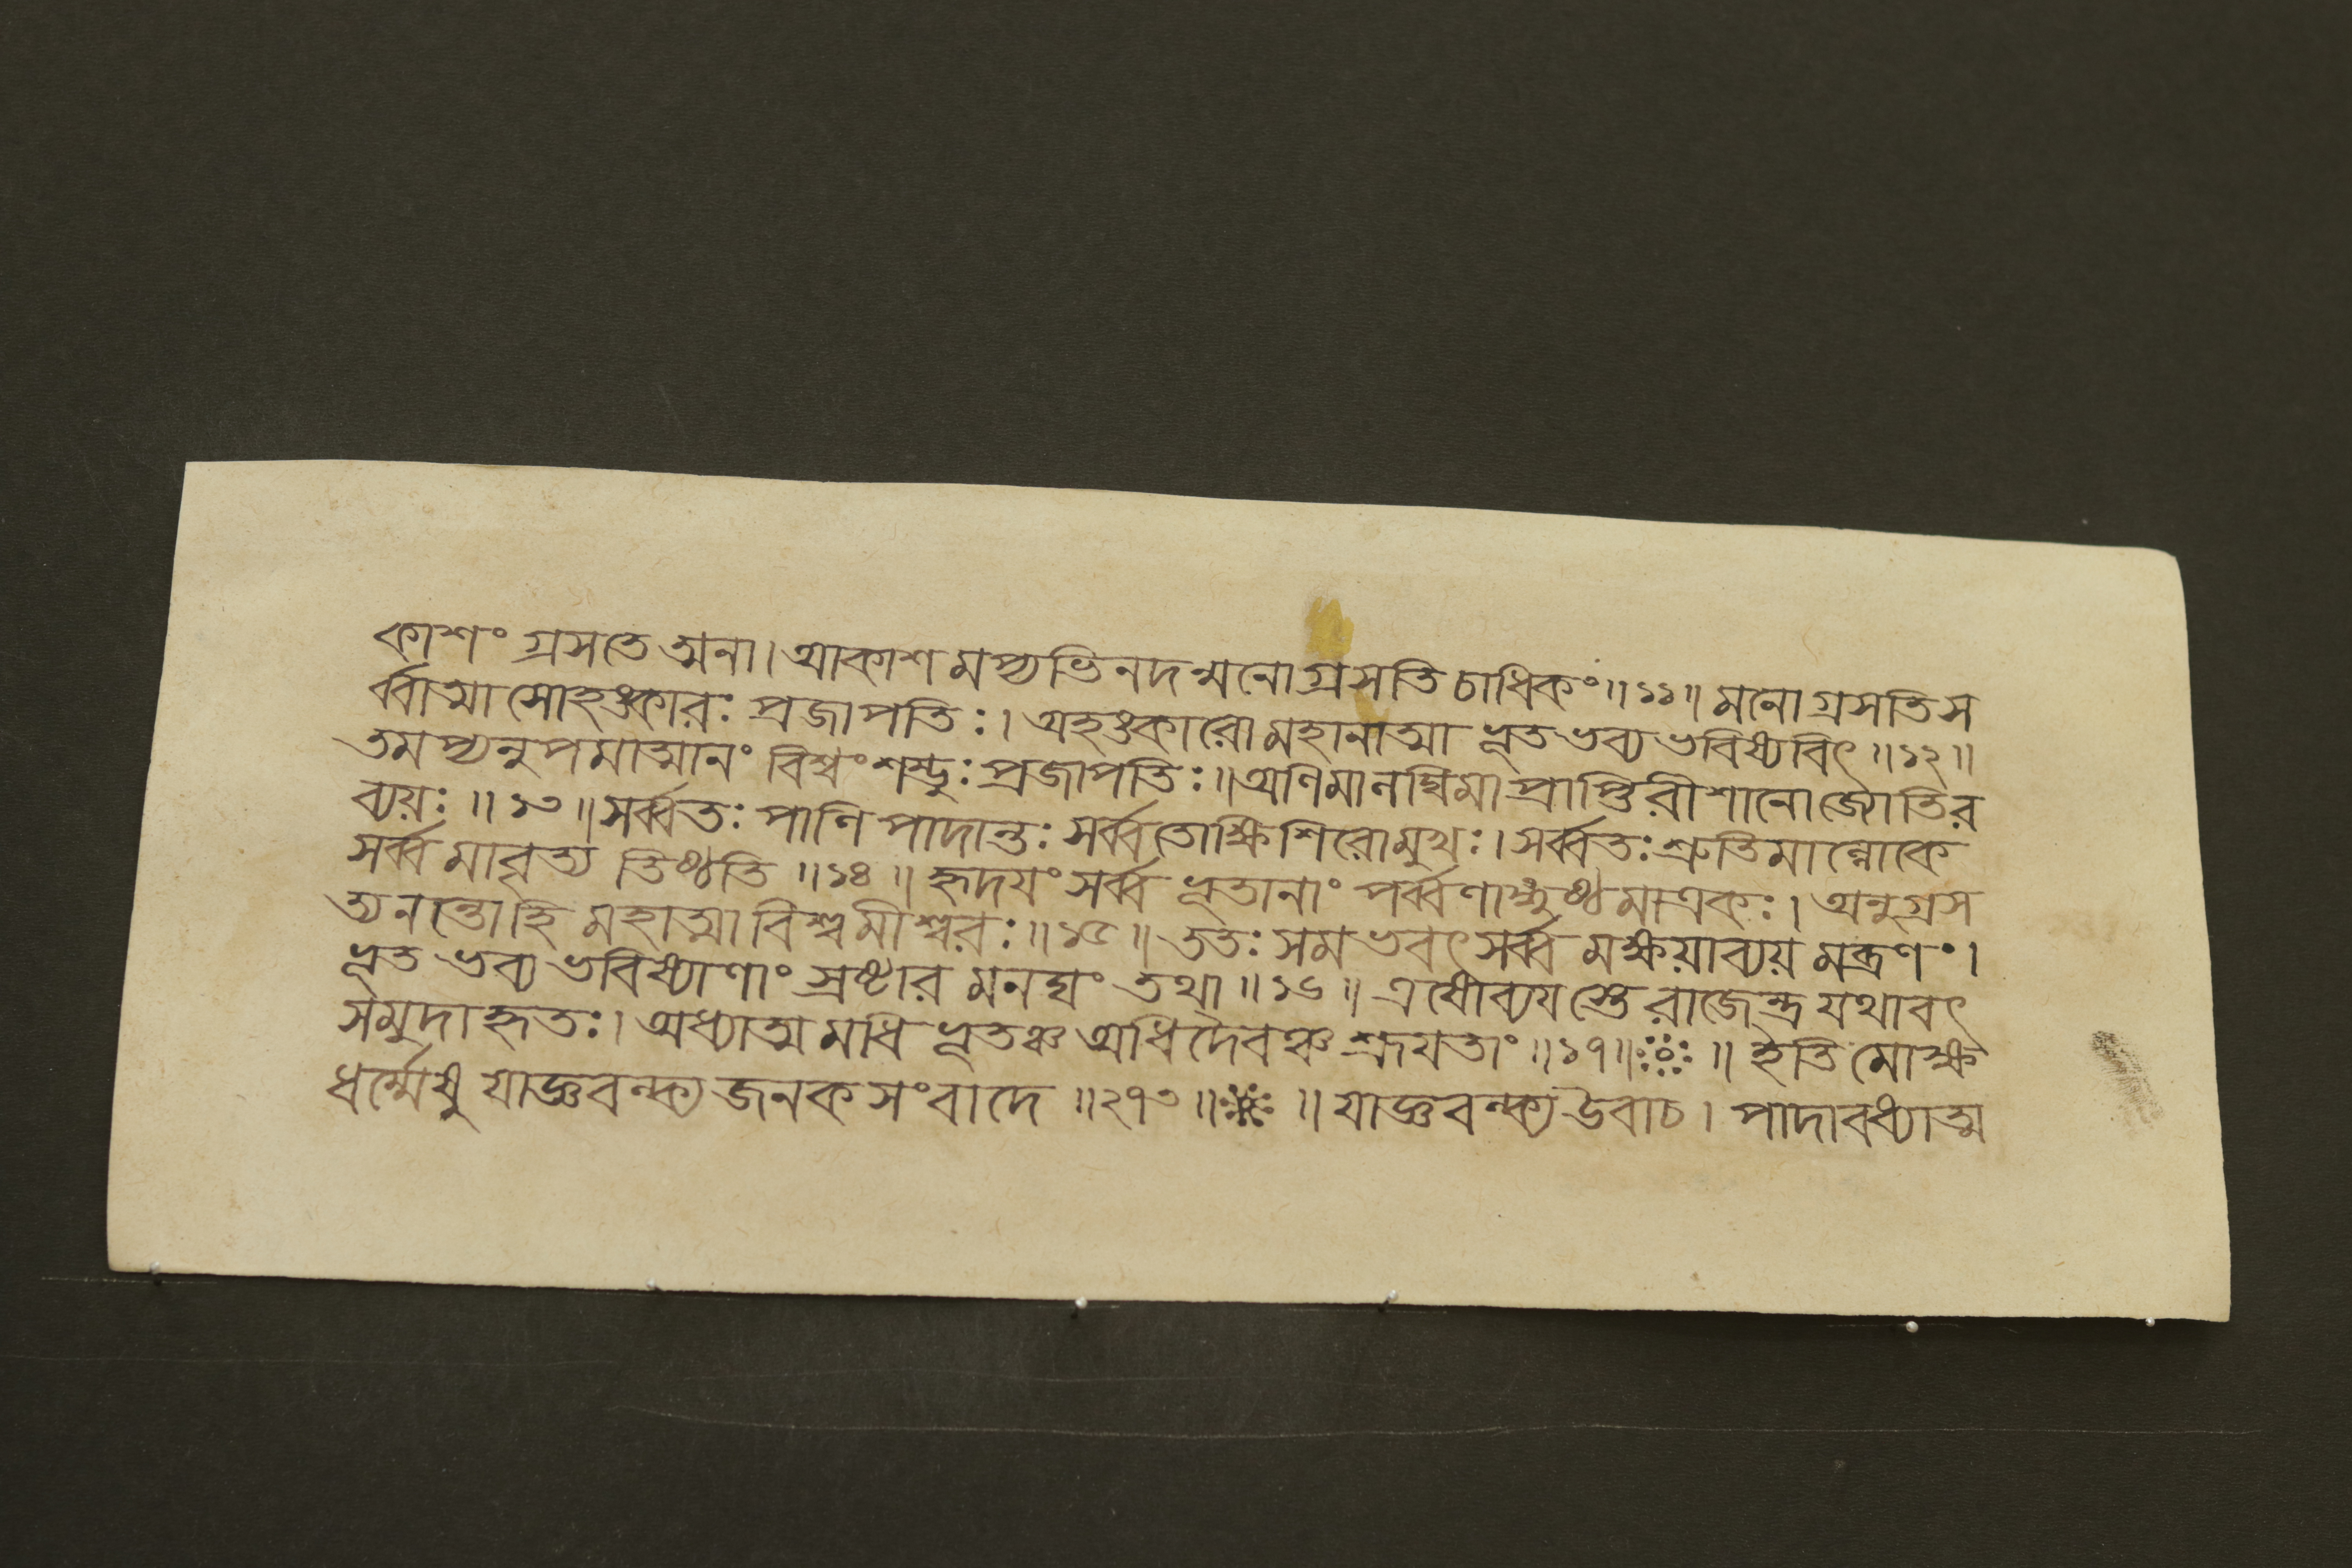 কাশং গ্রসতে ত্মনা। আকাশ মপ্যভিনদন্মনোগ্রসতি চাধিকং॥১১॥ মনো গ্রসতি স
র্ব্বাত্মা সোহঙ্কারঃ প্রজাপতিঃ। অহঙ্কারো মহানাত্মা ভূত ভব্য ভবিষ্যবিৎ॥১২॥
তমপ্যনুপমাত্মানং বিশ্বং শম্ভুঃ প্রজাপতিঃ॥ অণিমা লঘিমা প্রাপ্তিরীশানো জ্যোতির
ব্যয়ঃ॥১৩॥ সর্ব্বতঃ পাণি পাদান্তঃ সর্ব্বতোক্ষি শিরোমুখঃ। সর্ব্বতঃ শ্রুতিমাল্লোকে
সর্ব্ব মাবৃত্য তিষ্ঠতি॥১৪॥ হৃদয়ং সর্ব্ব ভূতানাং পর্ব্বণাঙ্গুষ্ঠমাত্রকঃ। অনুগ্রস
ত্যনন্তোহি মহাত্মা বিশ্বমীশ্বরঃ॥১৫॥ ততঃ সমভবৎ সর্ব্ব মক্ষয়াব্যয় মব্রণং।
ভূত ভব্য ভবিষ্যাণাং স্রষ্টার মনঘং তথা॥১৬॥ এষোব্যযস্তে রাজেন্দ্র যথাবৎ
সমুদাহৃতঃ। অধ্যাত্ম মধি ভূতঞ্চ অধিদৈবঞ্চ শ্রূযতাং॥১৭॥ ॥ ইতি মোক্ষ
ধর্ম্মেষু যাজ্ঞবল্ক্য জনক সংবাদে॥২৭৩॥ ॥ যাজ্ঞবল্ক্য উবাচ। পাদাবধ্যাত্ম